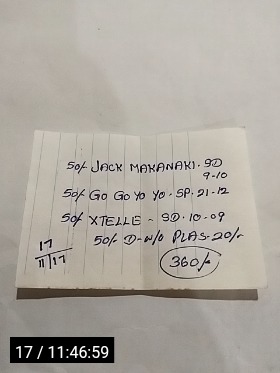 50/- JACK MAKANAKI - SD
9-10
50/- GO GO YO YO - SP. 21-12
50/- XTELLE - SD. 10-09
50/- D-W/O PLAS. 20/-
17
11/17
360/-
17 / 11:46:59